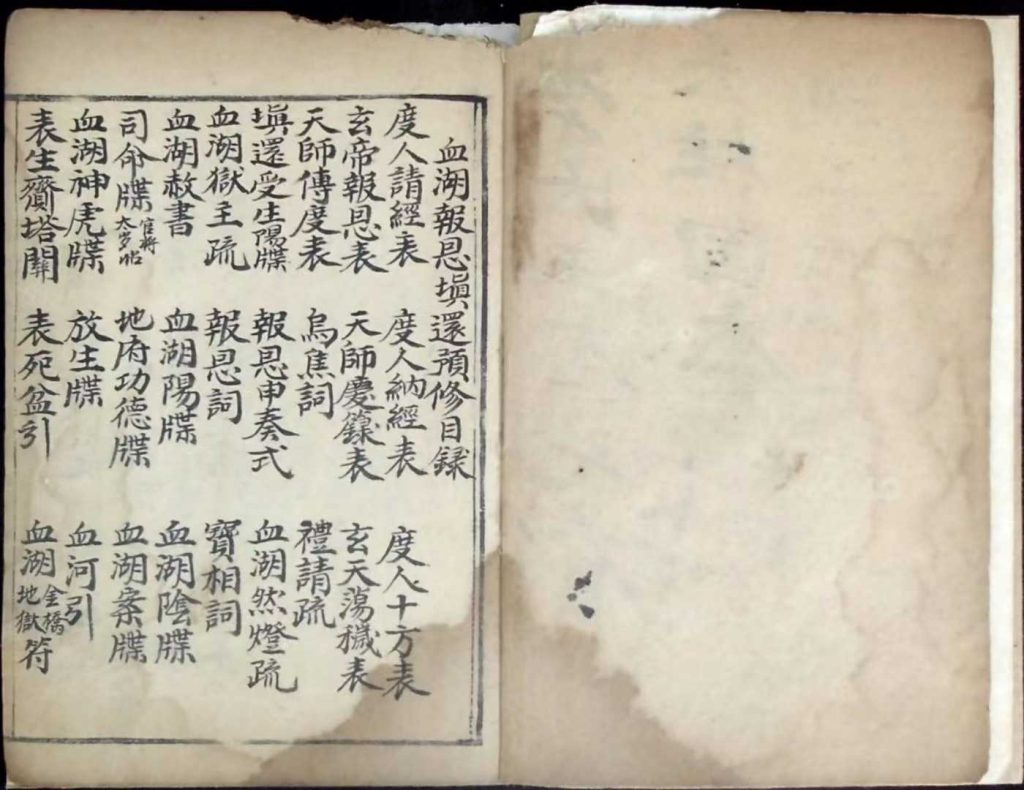 血湖報恩填還預修目録
度人請經表 度人納經表 度人十方表
玄帝報恩表 天師慶籙表 玄天蕩穢表
天師傳度表 烏焦詞 禮請疏
填還受生陽牒 報恩申奏式 血湖然燈疏
血湖獄主疏 報恩詞 寶相詞
血湖赦書 血湖陽牒 血湖陰牒
司命牒 官將 太岁帖 地府功德牒 血湖案牒
血湖神虎牒 放生牒 血河引
表生齎塔關 表死盆引 血湖 金橋 地獄 符